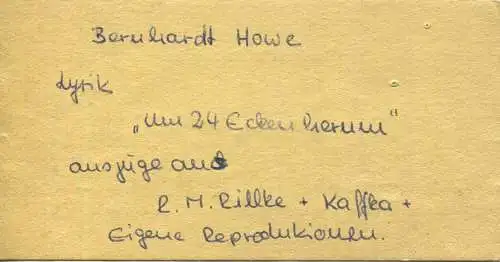 Bernhardt Howe
Lyrik
„Um 24 Ecken herum“
auszüge aus
R. M. Rillke + Kaffka +
Eigene Reproduktionen.